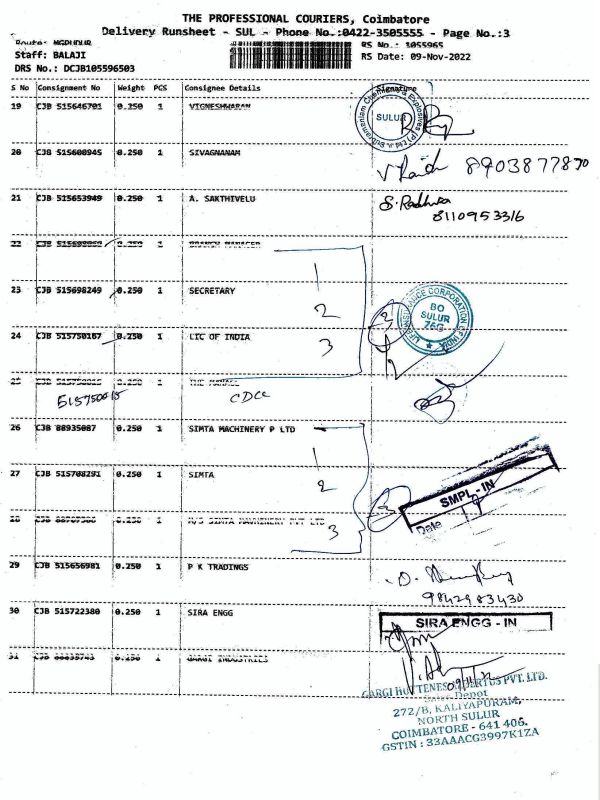 THE PROFESSIONAL COURIERS, Coimbatore
Delivery Runsheet - SUL - Phone No.:0422-3505555 - Page No.:3
Route: MGPUDUR
RS No.: 1055965
Staff: BALAJI
RS Date: 09-Nov-2022
DRS No.: DCJB105596503
S No Consignment No Weight PCS Consignee Details Signature
19 CJB 515646701 0.250 1 VIGNESHWARAN
SULUR
20 CJB 515600945 0.250 1 SIVAGNANAM
8903877870
21 CJB 515653949 0.250 1 A. SAKTHIVELU
S. Radhika
8110953316
22 CJB 0.250 1 BRANCH MANAGER
1
23 CJB 515698249 0.250 1 SECRETARY
2
3
BO
SULUR
24 CJB 515750167 0.250 1 LIC OF INDIA
3
25 CJB 0.250 1 THE
CDCC
26 CJB 88935087 0.250 1 SIMTA MACHINERY P LTD
1
27 CJB 515708291 0.250 1 SIMTA
2
3
SMPL - IN
Date
28 CJB 0.250 1 M/S SIMTA MACHINERY PVT LTD
3
29 CJB 515656981 0.250 1 P K TRADINGS
9842983430
30 CJB 515722380 0.250 1 SIRA ENGG
SIRA ENGG - IN
31 CJB 0.250 1 GARGI INDUSTRIES
09/11/22
GARGI HUTTENES ALBERTUS PVT. LTD.
Depot
272/B, KALIYAPURAM,
NORTH SULUR
COIMBATORE - 641 406.
GSTIN : 33AAACG3997K1ZA